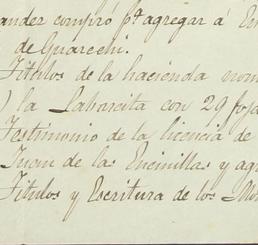 ander compró pª agregar á
de Guarechi.
Titulos de la hacienda nom
) la Labarcita con 29 foja
Testimonio de la licencia de
Juan de las Encinillas y agr
Titulos y Escritura de los Mo